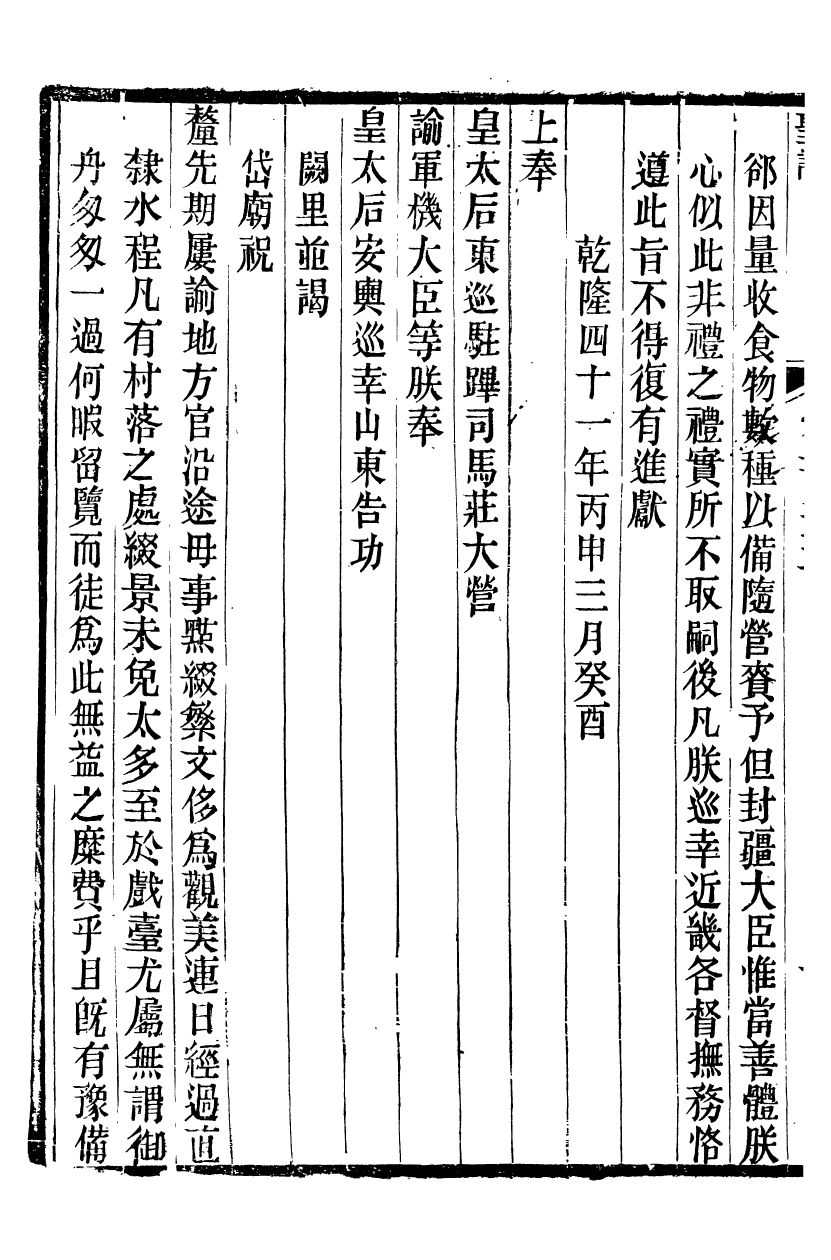 聖訓
郤因量收食物數種以備隨營賚予但封疆大臣惟當善體朕
心似此非禮之禮實所不取嗣後凡朕巡幸近畿各督撫務恪
遵此旨不得復有進獻
乾隆四十一年丙申三月癸酉
上奉
皇太后東巡駐蹕司馬莊大營
諭軍機大臣等朕奉
皇太后安輿巡幸山東告功
闕里並謁
岱廟祝
釐先期屢諭地方官沿途毋事點綴繁文侈爲觀美連日經過直
隸水程凡有村落之處綴景未免太多至於戲臺尤屬無謂御
舟匆匆一過何暇留覽而徒爲此無益之糜費乎且旣有豫備